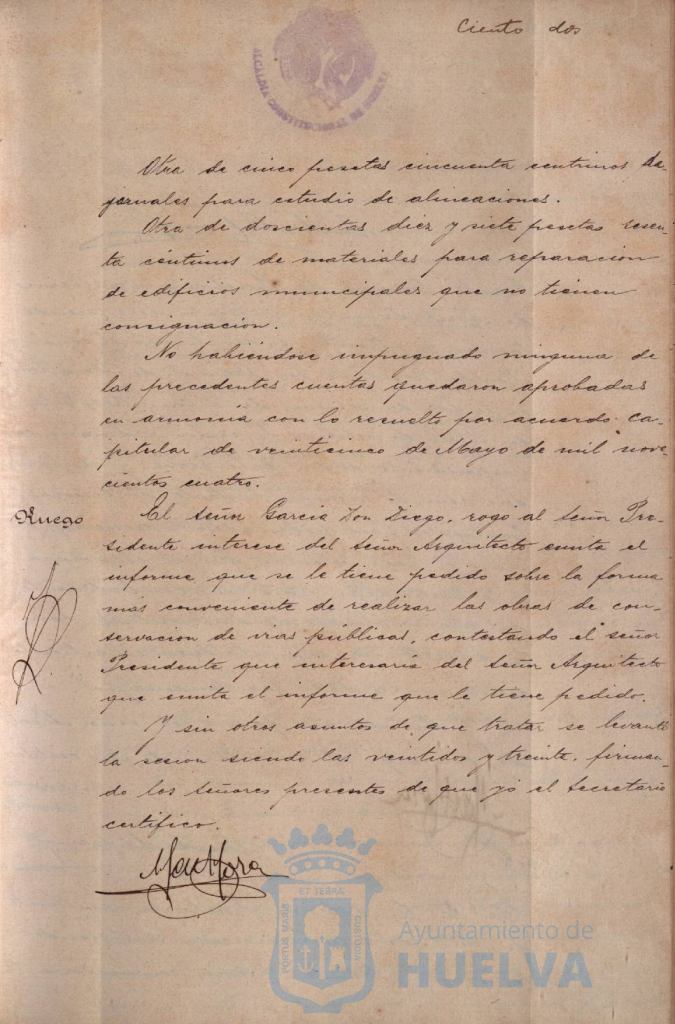 Ciento dos
ALCALDIA CONSTITUCIONAL DE HUELVA
Otra de cinco pesetas cincuenta centimos de
jornales para estudio de alineaciones.
Otra de doscientas diez y siete pesetas sesen-
ta céntimos de materiales para reparacion
de edificios municipales que no tienen
consignacion.
No habiéndose impugnado ninguna de
las precedentes cuentas quedaron aprobadas
en armonia con lo resuelto por acuerdo ca-
pitular de veinticinco de Mayo de mil nove-
cientos cuatro.
Ruego
El señor Garcia Don Diego, rogó al señor Pre-
sidente interese del señor Arquitecto emita el
informe que se le tiene pedido sobre la forma
más conveniente de realizar las obras de con-
servacion de vias públicas, contestando el señor
Presidente que interesaria del señor Arquitecto
que emita el informe que le tiene pedido.
Y sin otros asuntos de que tratar se levantó
la sesion siendo las veintidos y treinta, firman-
do los señores presentes de que yó el Secretario
certifico.
ET TERRÆ
PORTUS MARIS
CUSTODIA
Ayuntamiento de
HUELVA